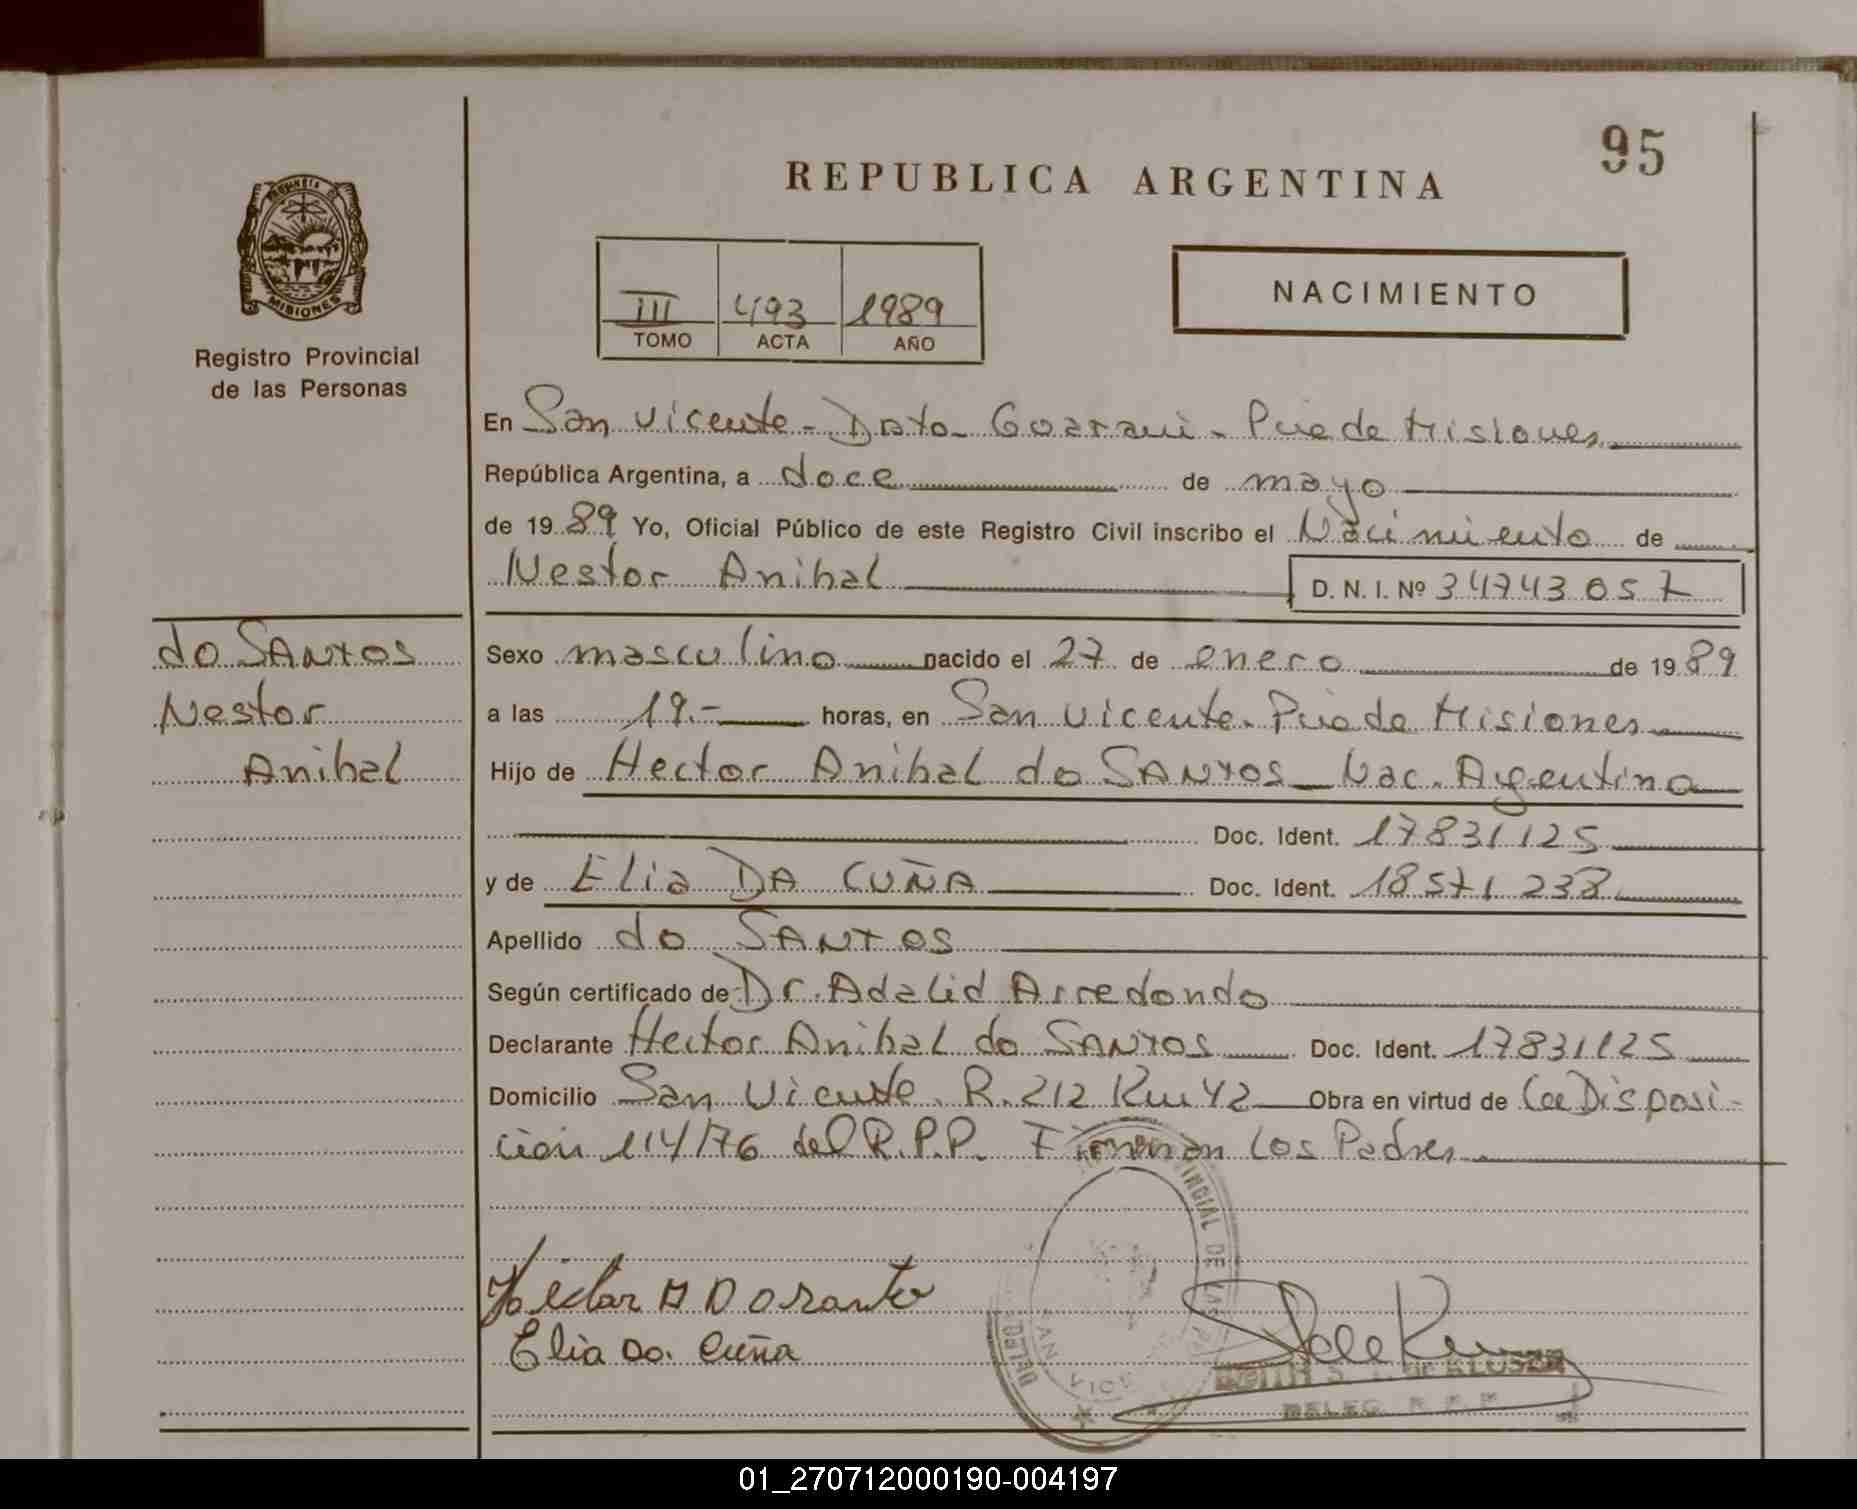 95
REPUBLICA ARGENTINA
PROVINCIA DE
MISIONES
Registro Provincial
de las Personas
III 493 1989
TOMO ACTA AÑO
NACIMIENTO
En San Vicente - Dpto. Guarani - Pcia de Misiones
República Argentina, a doce de mayo
de 1989 Yo, Oficial Público de este Registro Civil inscribo el Nacimiento de
Nestor Anibal D. N. I. Nº 34743057
do SANTOS
Nestor
Anibal
Sexo masculino nacido el 27 de enero de 1989
a las 19.- horas, en San Vicente. Pcia de Misiones
Hijo de Hector Anibal do SANTOS - Nac. Argentina
Doc. Ident. 17831125
y de Elia DA CUÑA Doc. Ident. 18571238
Apellido do SANTOS
Según certificado de Dr. Adalid Arredondo
Declarante Hector Anibal do SANTOS Doc. Ident. 17831125
Domicilio San Vicente. R. 212 Km 42 Obra en virtud de la Disposi-
cion 114/76 del R.P.P. Firman los Padres
Hector A D Oranto
Elia Do. Cuña
DE KLUSZA
DELEG. R. P. P.
01_270712000190-004197